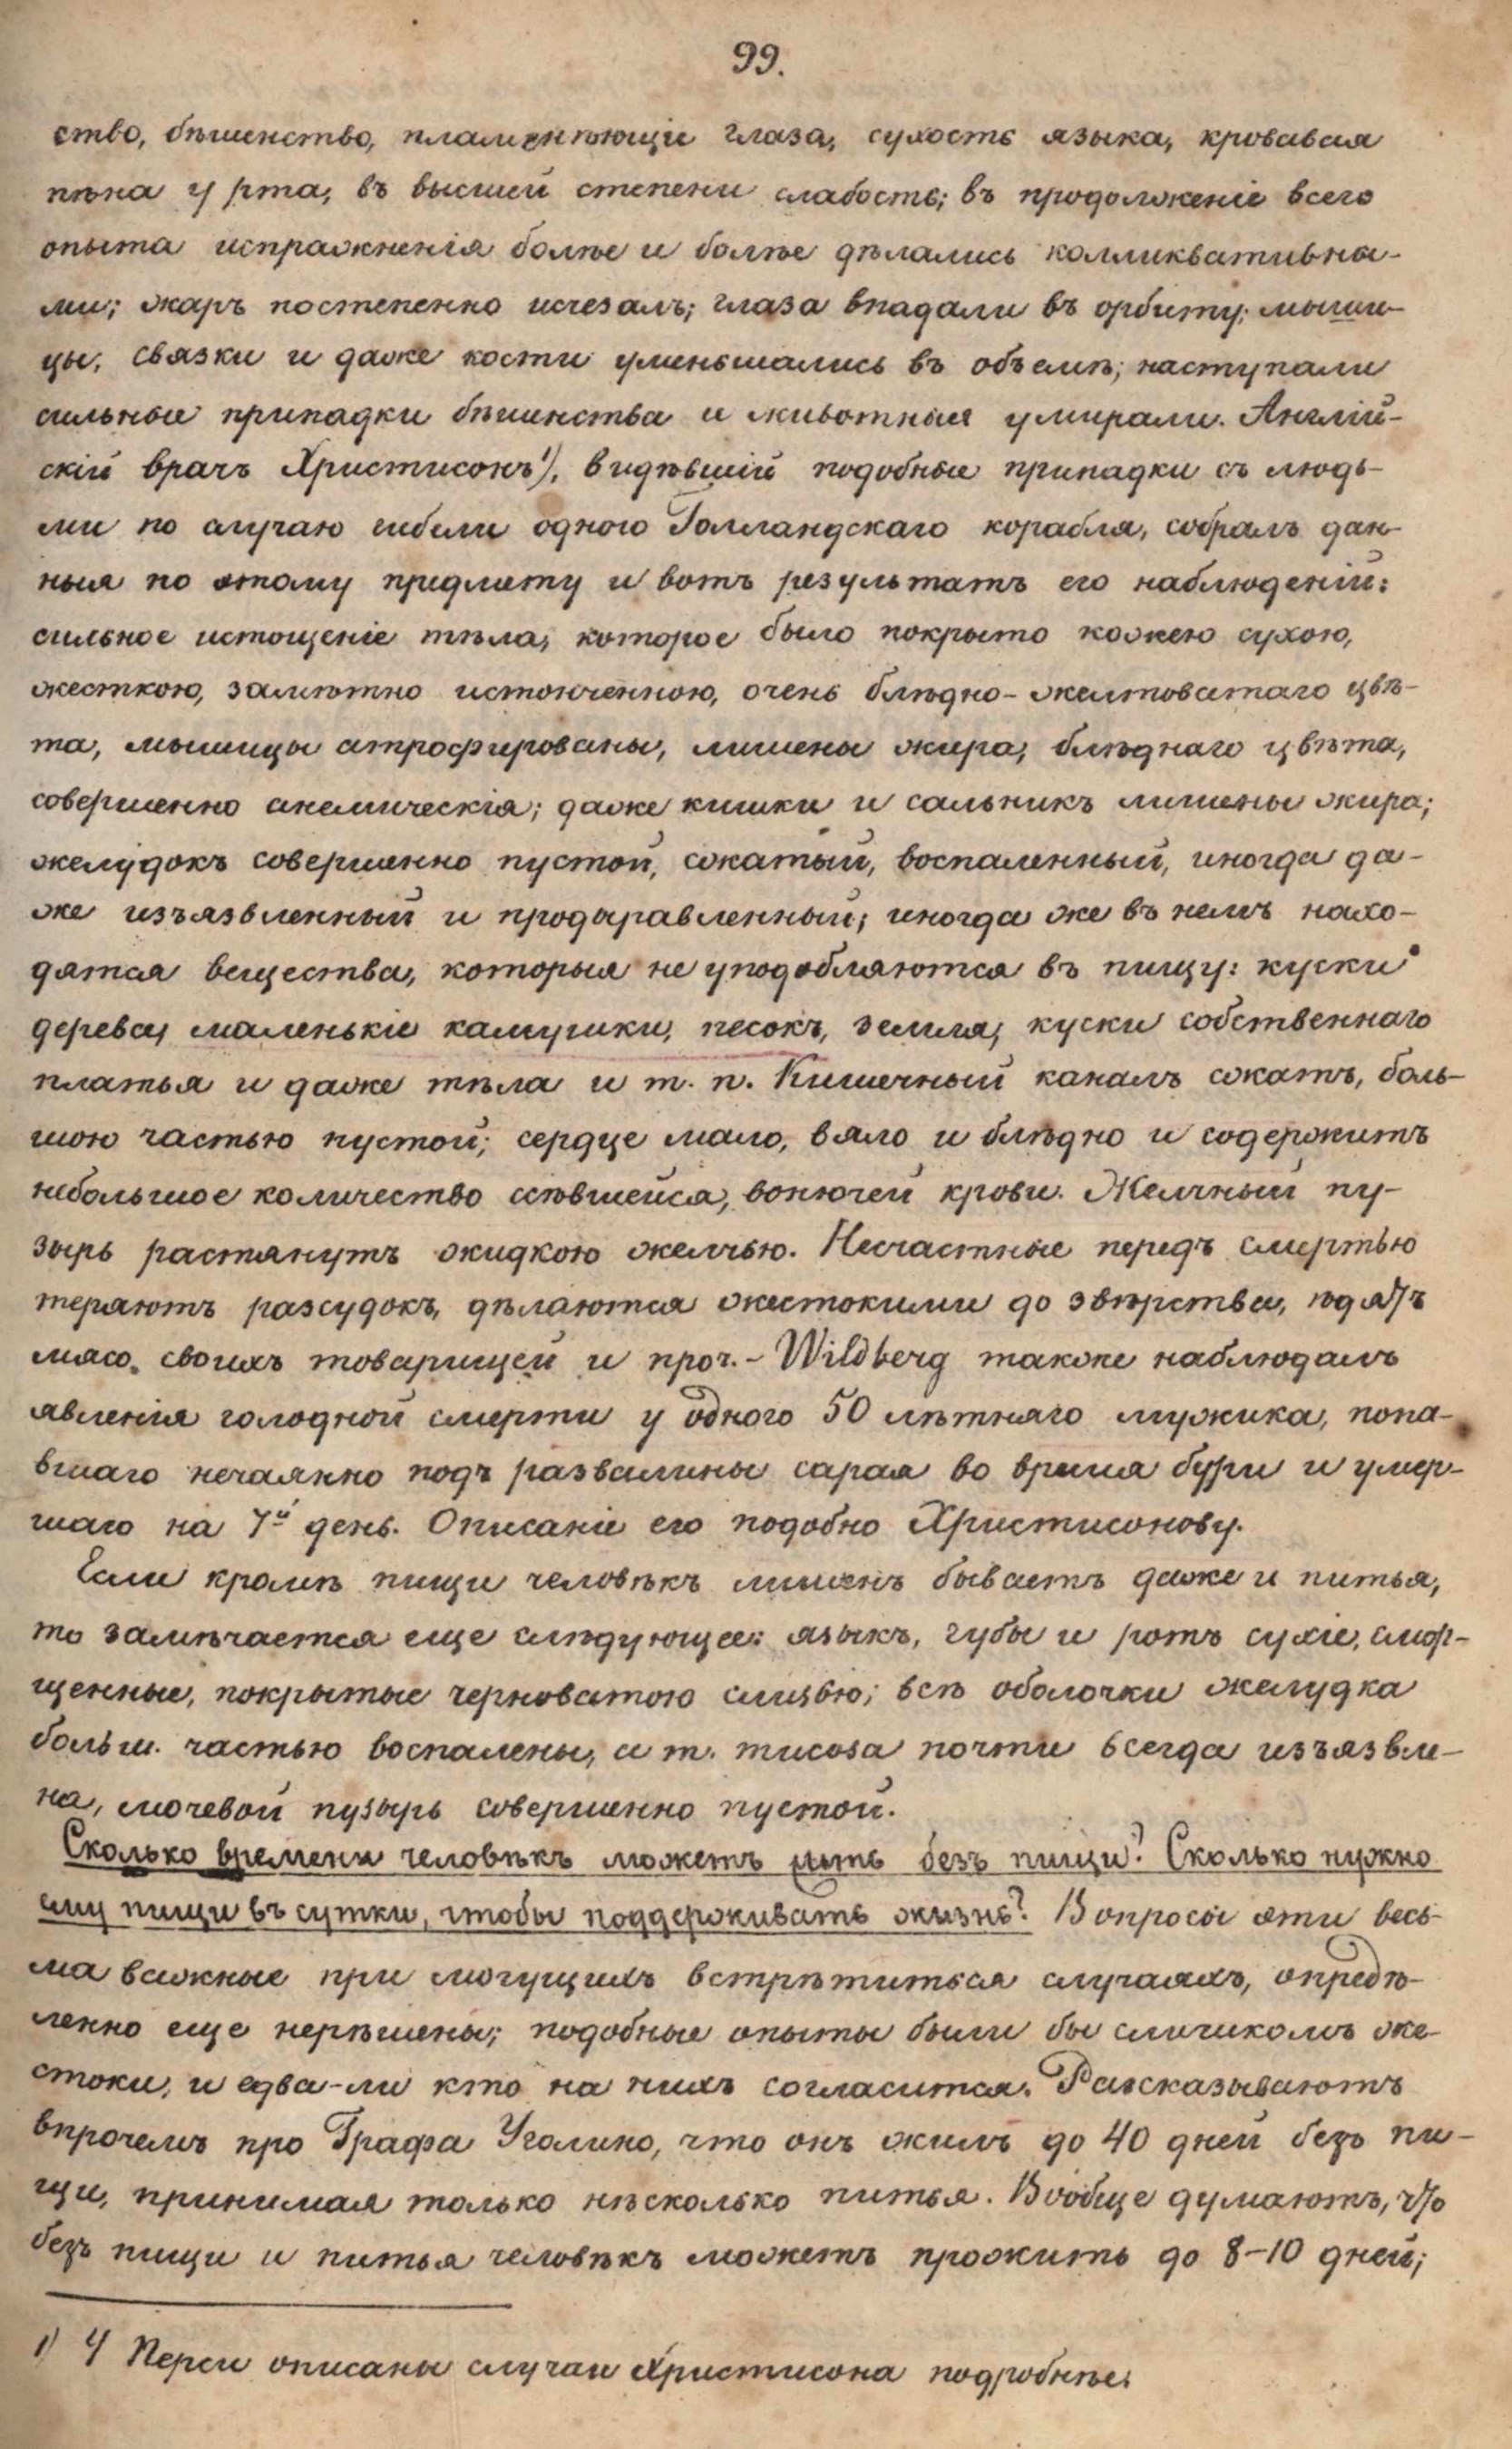 99.
ство, бѣшенство, пламенѣющіе глаза, сухость языка, кровавая
пѣна у рта, въ высшей степени слабость; въ продолженіе всего
опыта испражненія болѣе и болѣе дѣлались колликвативны-
ми; жаръ постепенно исчезалъ; глаза впадали въ орбиту; мыши-
цы, связки и даже кости уменьшались въ объемѣ; наступали
сильные припадки бѣшенства и животныя умирали. Англій-
скій врачъ Христисонъ¹), видѣвшій подобные припадки съ людь-
ми по случаю гибели одного Голландскаго корабля, собралъ дан-
ныя по этому предмету и вотъ результатъ его наблюденій:
сильное истощеніе тѣла, которое было покрыто кожею сухою,
жесткою, замѣтно истонченною, очень блѣдно-желтоватаго цвѣ-
та, мышицы атрофированы, лишены жира, блѣднаго цвѣта,
совершенно анемическія; даже кишки и сальникъ лишены жира;
желудокъ совершенно пустой, сжатый, воспаленный, иногда да-
же изъязвленный и продыравленный; иногда же въ немъ нахо-
дятся вещества, которыя не уподобляются въ пищу: куски
дерева, маленькіе камушки, песокъ, земля, куски собственнаго
платья и даже тѣла и т. п. Кишечный каналъ сжатъ, боль-
шою частью пустой; сердце мало, вяло и блѣдно и содержитъ
небольшое количество сѣвшейся, вонючей крови. Желчный пу-
зырь растянутъ жидкою желчью. Несчастные передъ смертью
теряютъ разсудокъ, дѣлаются жестокими до звѣрства, ѣдятъ
мясо своихъ товарищей и проч. - Wildberg также наблюдалъ
явленія голодной смерти у одного 50 лѣтняго мужика, попа-
вшаго нечаянно подъ развалины сарая во время бури и умер-
шаго на 7й день. Описаніе его подобно Христисонову.
Если кромѣ пищи человѣкъ лишенъ бываетъ даже и питья,
то замѣчается еще слѣдующее: языкъ, губы и ротъ сухіе, смор-
щенные, покрытые черноватою слизью; всѣ оболочки желудка
больш. частью воспалены, а т. mucosa почти всегда изъязвле-
на, мочевой пузырь совершенно пустой.
Сколько времени человѣкъ можетъ быть безъ пищи? Сколько нужно
ему пищи въ сутки, чтобы поддерживать жизнь? Вопросы эти весь-
ма важные при могущихъ встрѣтиться случаяхъ, опредѣ-
ленно еще нерѣшены; подобные опыты были бы слишкомъ же-
стоки, и едва-ли кто на нихъ согласится. Разсказываютъ
впрочемъ про Графа Уголино, что онъ жилъ до 40 дней безъ пи-
щи, принимая только нѣсколько питья. Вообще думаютъ, что
безъ пищи и питья человѣкъ можетъ прожить до 8-10 дней;
1) У Перси описаны случаи Христисона подробнѣе.